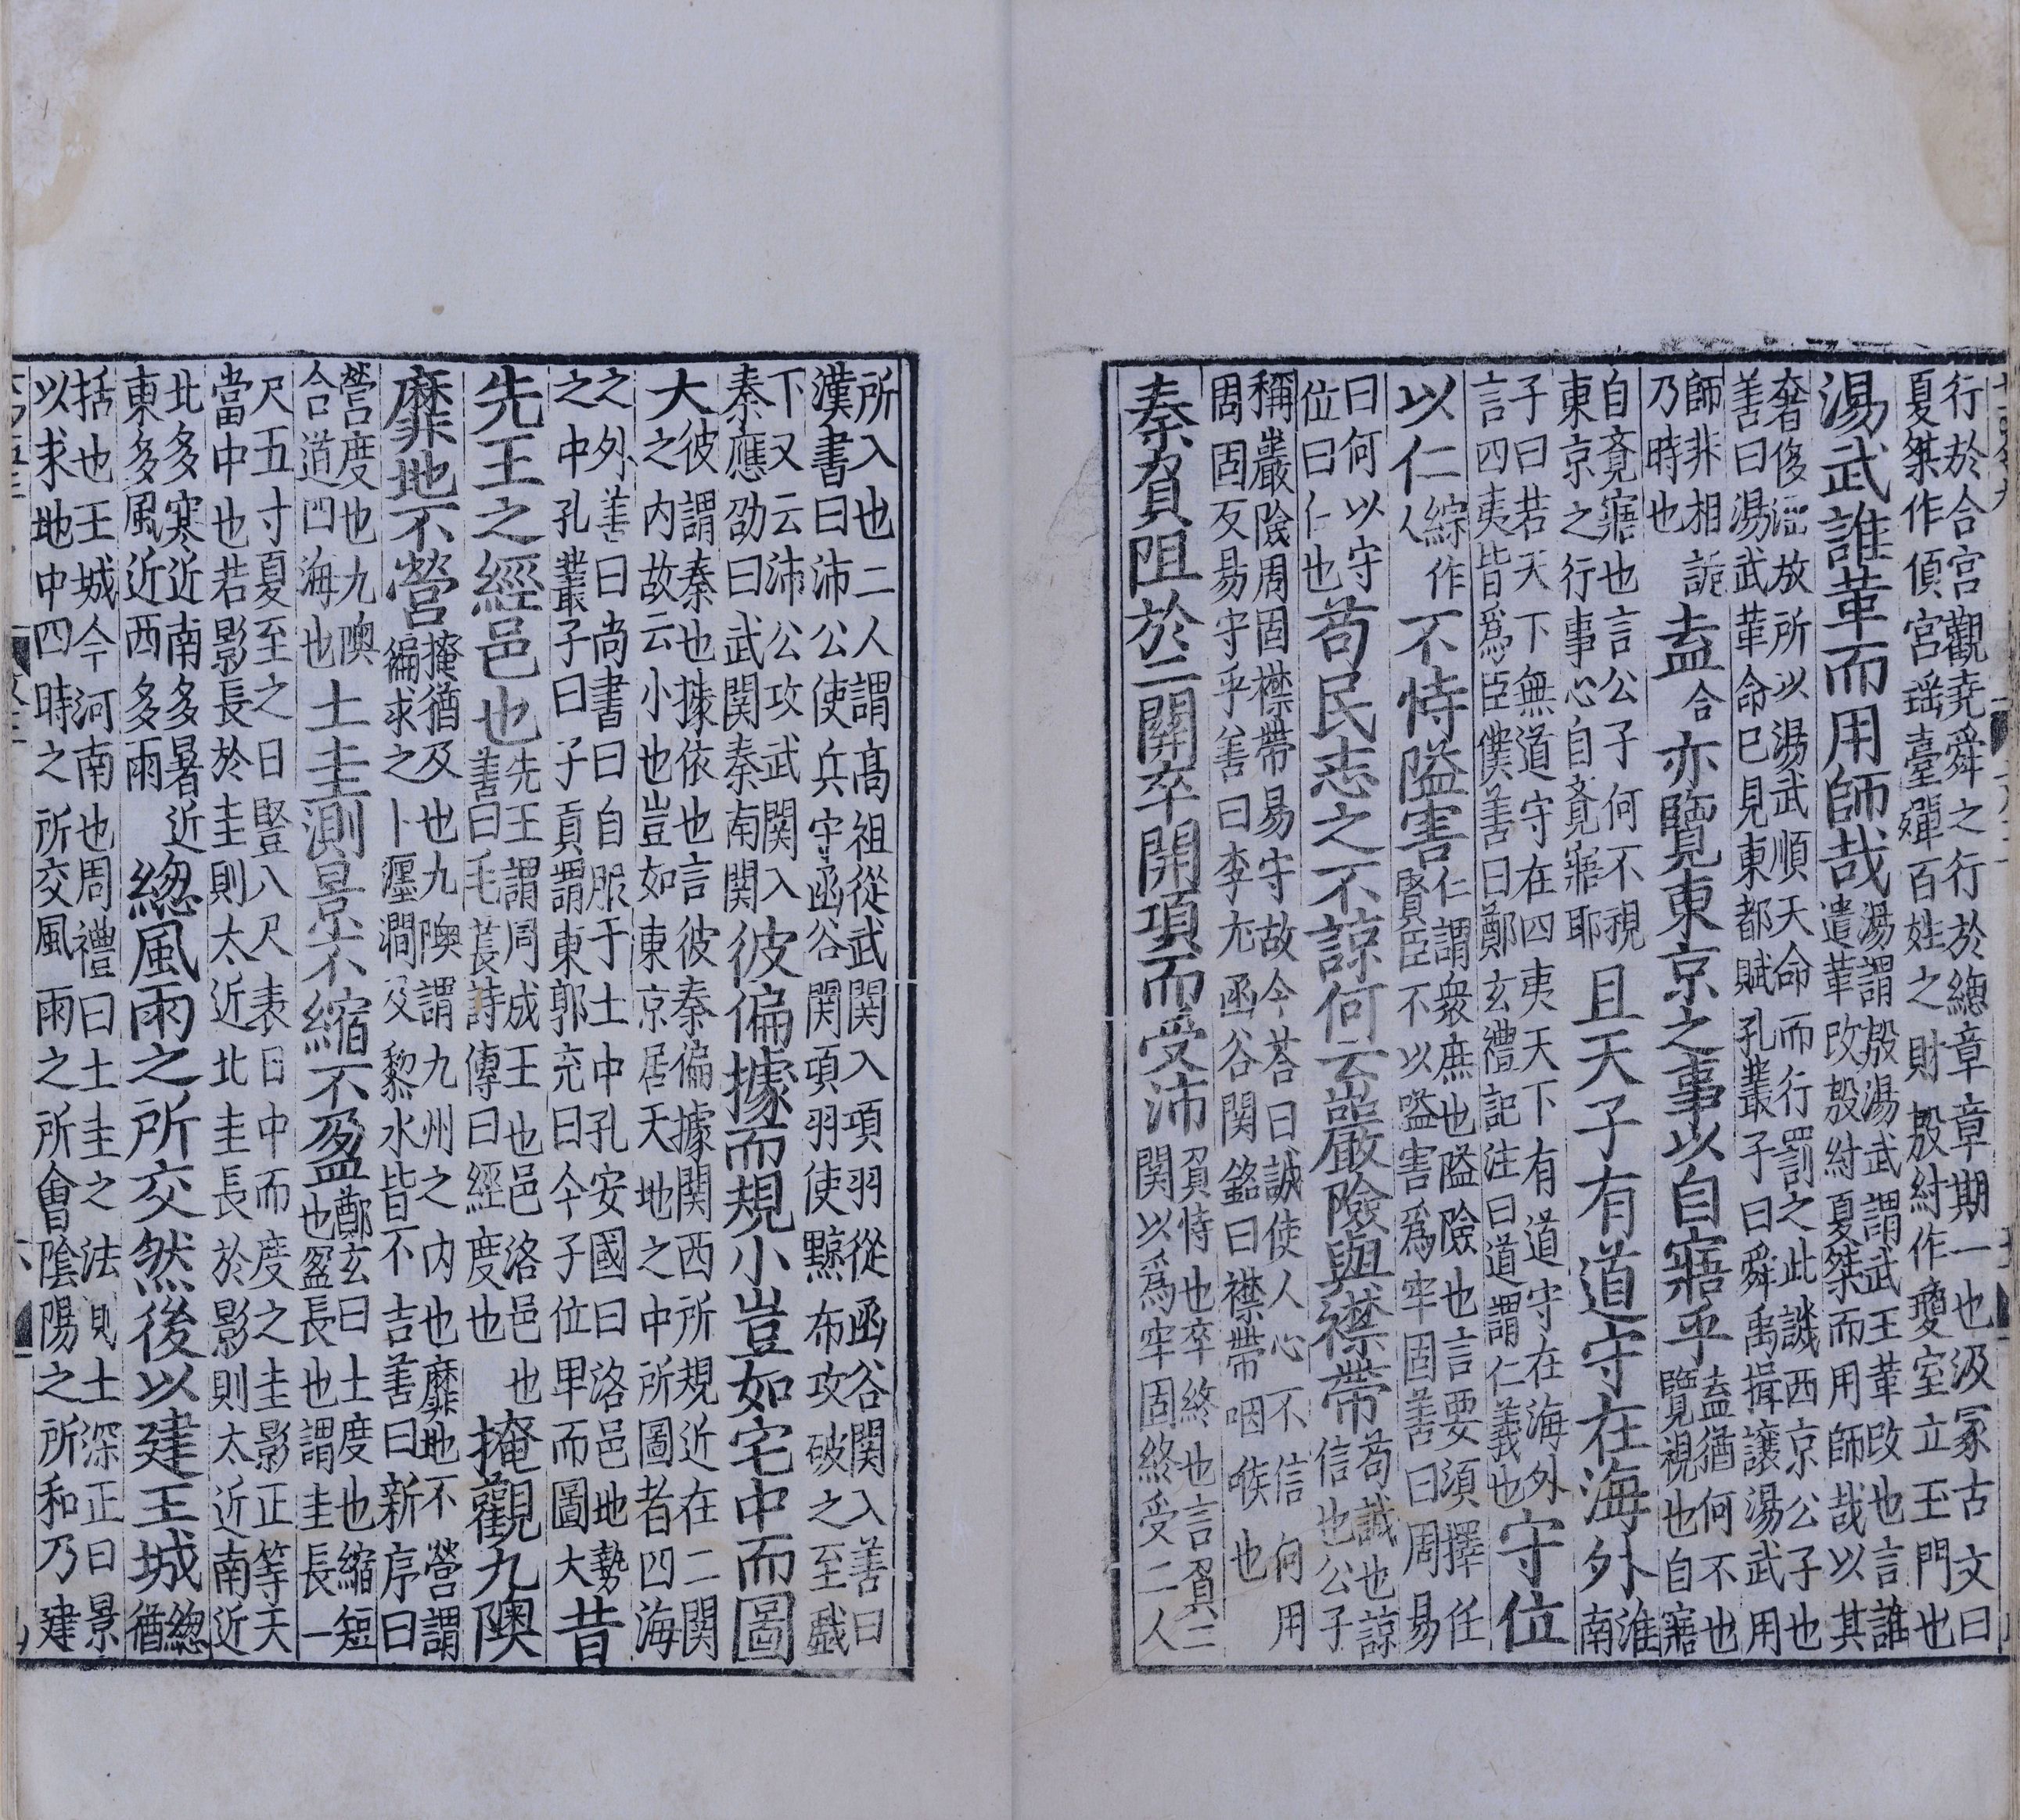 行於合宮觀堯舜之行於總章章期一也汲冢古文曰
夏桀作傾宮瑶臺殫百姓之財殷紂作瓊室立玉門也
湯武誰革而用師哉湯謂殷湯武謂武王革改也言誰
遣革改殷紂夏桀而用師哉以其
奢侈淫放所以湯武順天命而行罰之此譏西京公子也
善曰湯武革命已見東都賦孔叢子曰舜禹揖讓湯武用
師非相詭
乃時也
盍合亦覽東京之事以自寤乎盍猶何不也
覽視也自寤
自覔寤也言公子何不視
東京之行事心自覔寤耶
且天子有道守在海外淮
南
子曰若天下無道守在四夷天下有道守在海外
言四夷皆爲臣僕善曰鄭玄禮記注曰道謂仁義也
守位
以仁綜作
人
不恃隘害仁謂衆庶也隘險也言要須擇任
賢臣不以隘害爲牢固善曰周易
曰何以守
位曰仁也
苟民志之不諒何云巖險與襟帶苟誠也諒
信也公子
稱巖險周固襟帶易守故今荅曰誠使人心不信何用
周固反易守乎善曰李尤函谷関銘曰襟帶咽喉也
秦負阻於二關卒開項而受沛負恃也卒終也言負二
関以爲牢固終受二人
所入也二人謂高祖從武関入項羽從函谷関入善曰
漢書曰沛公使兵守函谷関項羽使黥布攻破之至戲
下又云沛公攻武関入
秦應劭曰武関秦南関
彼偏據而規小豈如宅中而圖
大彼謂秦也據依也言彼秦偏據関西所規近在二関
之内故云小也豈如東京居天地之中所圖者四海
之外善曰尚書曰自服于土中孔安國曰洛邑地勢
之中孔叢子曰子貢謂東郭充曰今子位卑而圖大
昔
先王之經邑也先王謂周成王也邑洛邑也
善曰毛萇詩傳曰經度也
掩觀九隩
靡地不營掩猶及也九隩謂九州之内也靡地不營謂
徧求之卜瀍澗及黎水皆不吉善曰新序曰
營度也九隩
合道四海也
土圭測景不縮不盈鄭玄曰土度也縮短
也盈長也謂圭長一
尺五寸夏至之日豎八尺表日中而度之圭影正等天
當中也若影長於圭則太近北圭長於影則太近南近
北多寒近南多暑近
東多風近西多雨
緫風雨之所交然後以建王城緫
猶
括也王城今河南也周禮曰土圭之法則土深正日景
以求地中四時之所交風雨之所會陰陽之所和乃建